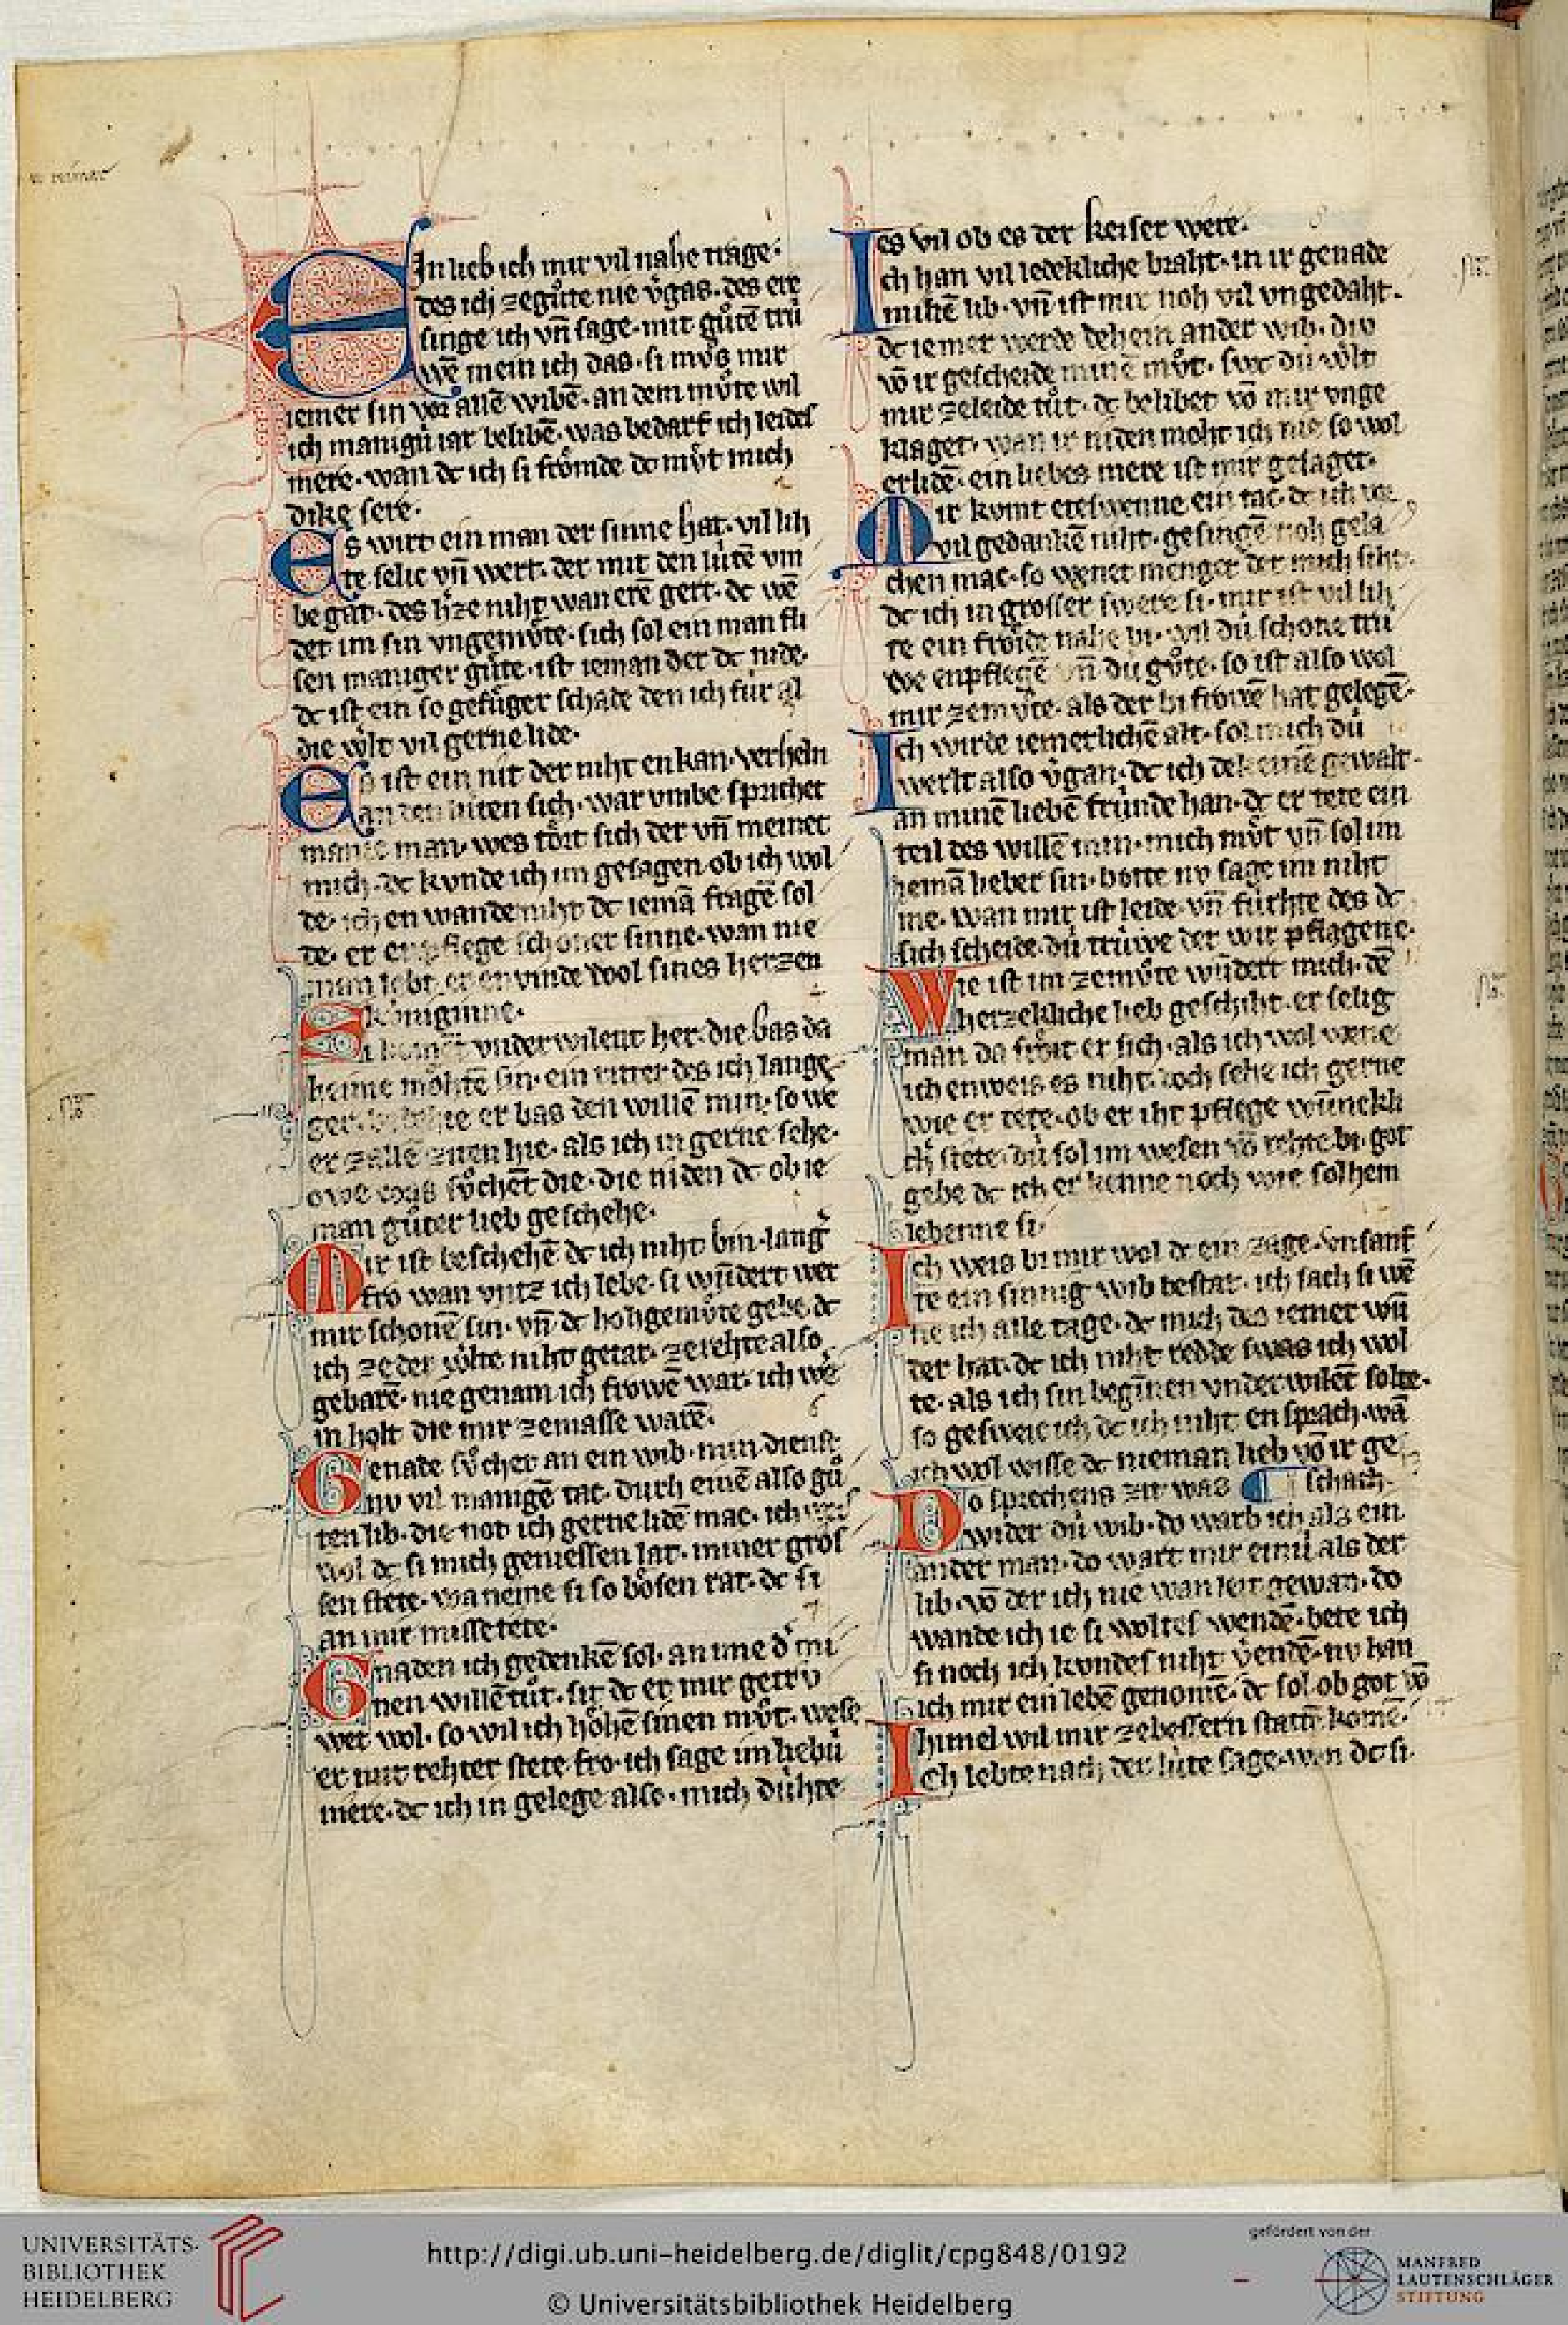 EIn lieb ich mir vil nahe trage·
des ich zegůte nie v̓gas· des ere
singe ich vn̄ sage· mit gůtē trú
wē mein ich das· si můs mir
iemer sin vor allē wibē· an dem můte wil
ich manigú iar belibē· was bedarf ich leides
mere· wan dc ich si frômde dc mût mich
dike sere·
Es wirt ein man der sinne hat· vil lih
te selic vn̄ wert· der mit den lútē vm
be gat· des h̓ze niht wan erē gert· dc wē
det im sin vngemůte· sich sol ein man fli
sen maniger gůte· ist ieman der dc nide·
dc ist ein so gefůger schade den ich fúr al
die w̓lt vil gerne lide·
Es ist ein nit der niht en kan· verheln
an den lúten sich· war vmbe sprichet
manic man· wes tôrt sich der vn̄ meinet
mich· dc kvnde ich im gesagen ob ich wol
de· ich en wande niht dc iemā fragē sol
te· er en pflege schoner sinne· wan nie
man lebt er en vinde wol sines herzen
kúniginne·
Si komēt vnder wilent her· die bas da
heime môhtē sin· ein ritter des ich lange
ger· bedehte er bas den willē min· so we
er zallē ziten hie· als ich in gerne sehe·
owe was sůchent die· die niden dc ob ie
man gůter lieb geschehe·
Mir ist beschehē dc ich niht bin· lang̓
fro wan vntz ich lebe· si wūdert wer
mir schonē sin· vn̄ dc hohgemůte gebe· dc
ich ze der w̓lte niht getar· ze rehte also
gebarē· nie genam ich frowē war· ich we̓
in holt die mir zemasse warē·
Genade sůchet an ein wib· min dienst
nv vil manigē tac· durh einē also gů
ten lib· die not ich gerne lidē mac· ich weis
wol dc si mich geniessen lat· miner gros
sen stete· wa neme si so bôsen rat· dc si
an mir missetete·
Gnaden ich gedenkē sol· an ime d̓ mi
nen willē tůt· sit dc er mir getrv
wet wol· so wil ich hôhē sinen můt· wese
er mit rehter stete fro· ich sage im liebú
mere· dc ich in gelege also· mich dúhte
es vil ob es der keiser were·
Ich han vil ledekliche braht· in ir genade
minē lib· vn̄ ist mir noh vil vngedaht·
dc iemer werde dehein ander wib· div
vō ir gescheide minē můt· swc dú w̓lt
mir zeleide tůt· dc belibet vō mir vnge
klaget· wan ir niden moht ich nie so wol
erlidē· ein liebes mere ist mir gesaget·
Mir kvmt eteswenne ein tac· dc ich vor
vil gedankē niht· gesingē noh gela
chen mac· so wenet menger der mich siht·
dc ich in grosser swere si· mir ist vil lih
te ein frôide nahe bi· wil dú schone trú
we enpflegē vn̄ dú gůte· so ist also wol
mir zemůte· als der bi frowē hat gelegē·
Ich wirde iemerlichē alt· sol mich dú
werlt also v̓gan· dc ich dekeinē gewalt·
an minē liebē frúnde han· dc er tete ein
teil des willē min· mich mût vn̄ sol im
iemā lieber sin· botte nv sage im niht
me· wan mir ist leide· vn̄ fúrhte des dc
sich scheide· dú trúwe der wir pflagene·
Wie ist im zemůte wūdert mich· dē
herzekliche lieb geschiht· er selig
man da frôit er sich· als ich wol wene
ich enweis es niht· doch sehe ich gerne
wie er tete· ob er iht pflege wūnekli
ch̓ stete· dú sol im wesen vō rehte bi· got
gebe dc ich er kenne noch wie solhem
lebenne si·
Ich weis bi mir wol dc ein zage· vnsanf
te ein sinnig wib bestat· ich sach si wē
ne ich alle tage· dc mich des iemer wū
der hat· dc ich niht redde swas ich wol
te· als ich sin begīnen vnder wilēt solte·
so gesweic ich dc ich niht en sprach· wā
ich wol wisse dc nieman lieb vō ir ge
Do sprechens zit was ¶ schach·
wider dú wib· do warb ich als ein
ander man· do wart mir einú als der
lib· vō der ich nie wan leit gewan· do
wande ich ie si woltes wendē· bete ich
si noch ich kvndes niht v̓endē· nv han
ich mir ein lebē genomē· dc sol ob got vō
himel wil mir zebessern stattē komē·
Ich lebte nach der lúte sage· wan dc si·
UNIVERSITÄTS-
BIBLIOTHEK
HEIDELBERG
http://digi.ub.uni-heidelberg.de/diglit/cpg848/0192
© Universitätsbibliothek Heidelberg
gefördert von der
MANFRED
LAUTENSCHLÄGER
STIFTUNG